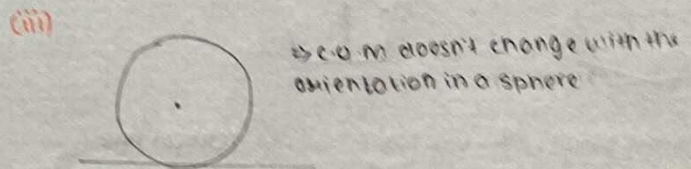 (iii)
⇒ c.o.m doesn't change with the
orientation in a sphere